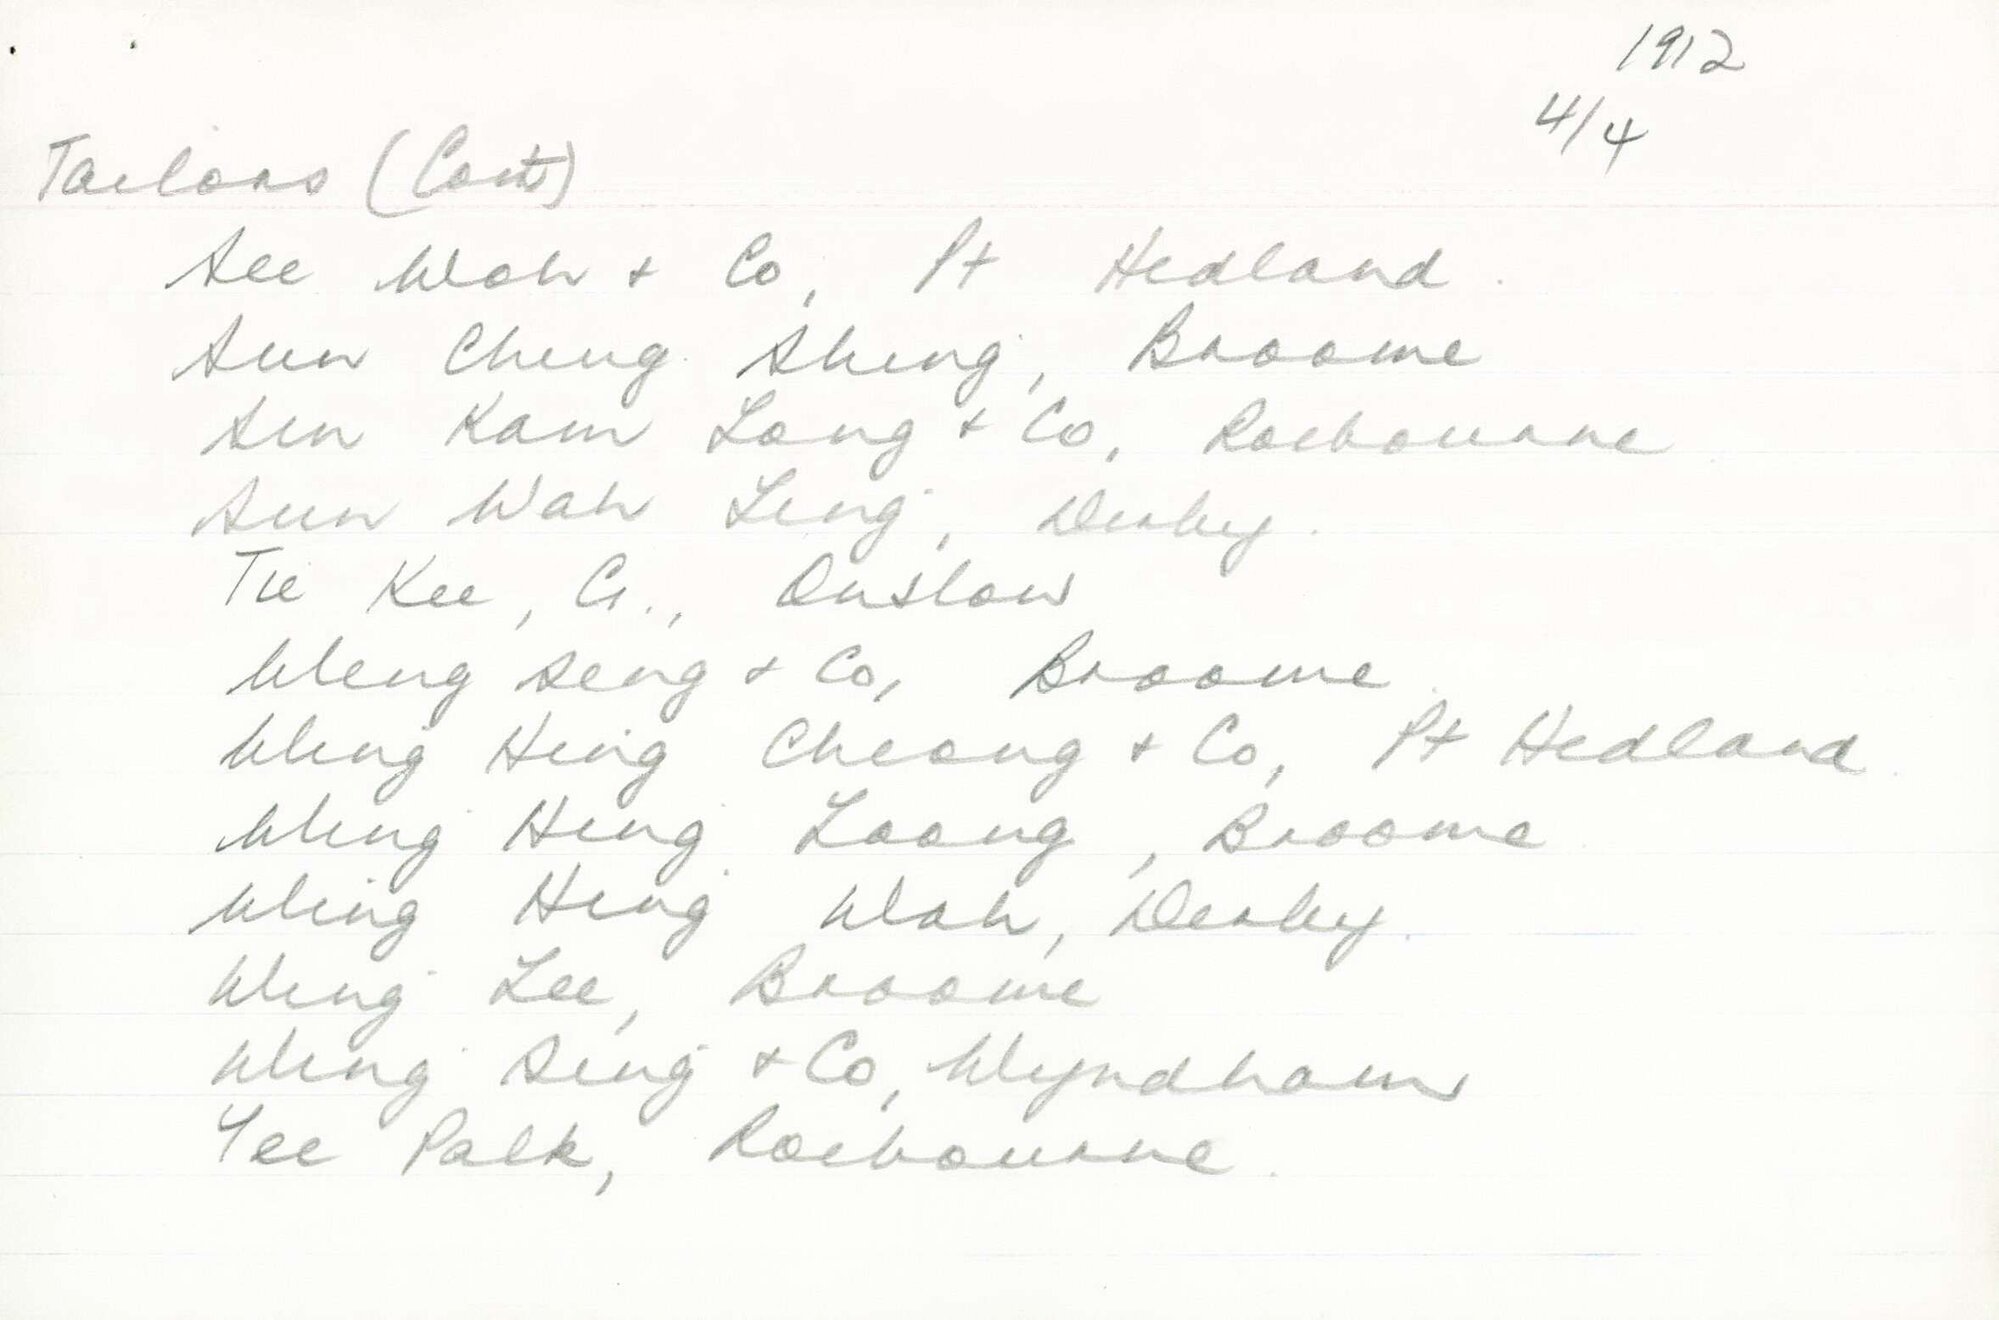 1912
4/4
Tailors (Cont)
See Wah + Co, Pt Hedland.
Sun Cheng Shing, Broome
Sin Kam Long + Co, Roebourne
Sun Wah Ling, Derby.
Tie Kee, G., Onslow
Weng Seng + Co, Broome.
Wing Hing Cheong + Co, Pt Hedland.
Wing Hing Loong, Broome.
Wing Hing Wah, Derby.
Wing Lee, Broome
Wing Sing + Co, Wyndham
Yee Palk, Roebourne.